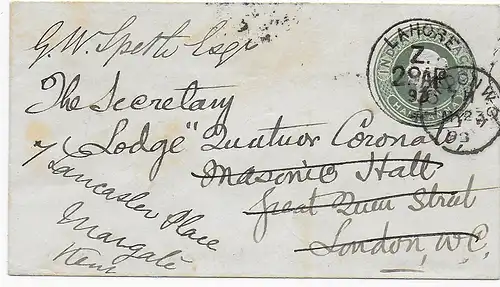 G. W. Speth Esqr
The Secretary
Lodge "Quatuor Coronati
Masonic Hall
Great Queen Street
London, W.C.
7 Lancaster Place
Margate
Kent
LAHORE
Z.
2
93
W.C.
MY 23
93